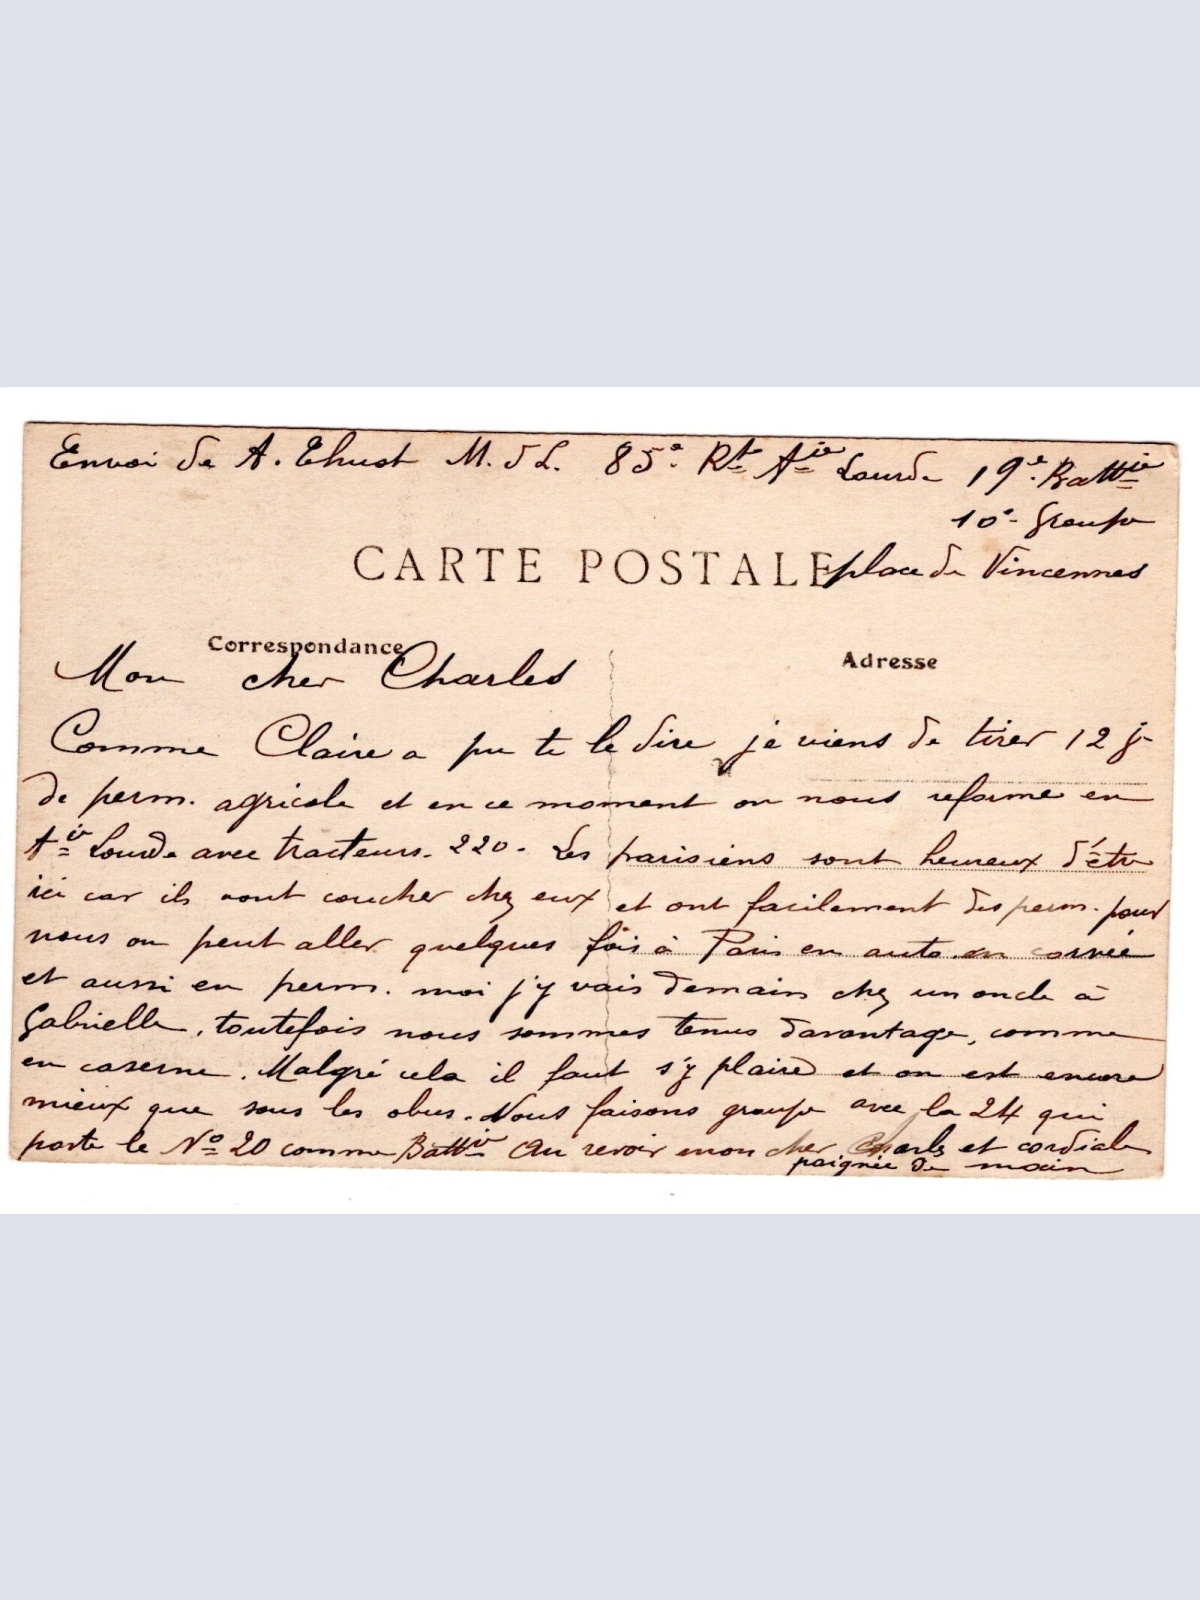 Envoi de A. Thust M. d L. 85e Rt Aie Lourde 19e Battie
10e Groupe
CARTE POSTALE place de Vincennes
Correspondance Adresse
Mon cher Charles
Comme Claire a pu te le dire je viens de tirer 12 j
de perm. agricole et en ce moment on nous reforme en
Aie Lourde avec tracteurs. 220. Les parisiens sont heureux d'être
ici car ils vont coucher chez eux et ont facilement des perm. pour
nous on peut aller quelques fois à Paris en auto en corvée
et aussi en perm. moi j'y vais demain chez un oncle à
Gabrielle, toutefois nous sommes tenus davantage, comme
en caserne. Malgré cela il faut s'y plaire et on est encore
mieux que sous les obus. Nous faisons groupe avec la 24 qui
porte le No 20 comme Battie Au revoir mon cher Charles et cordiale
poignée de main